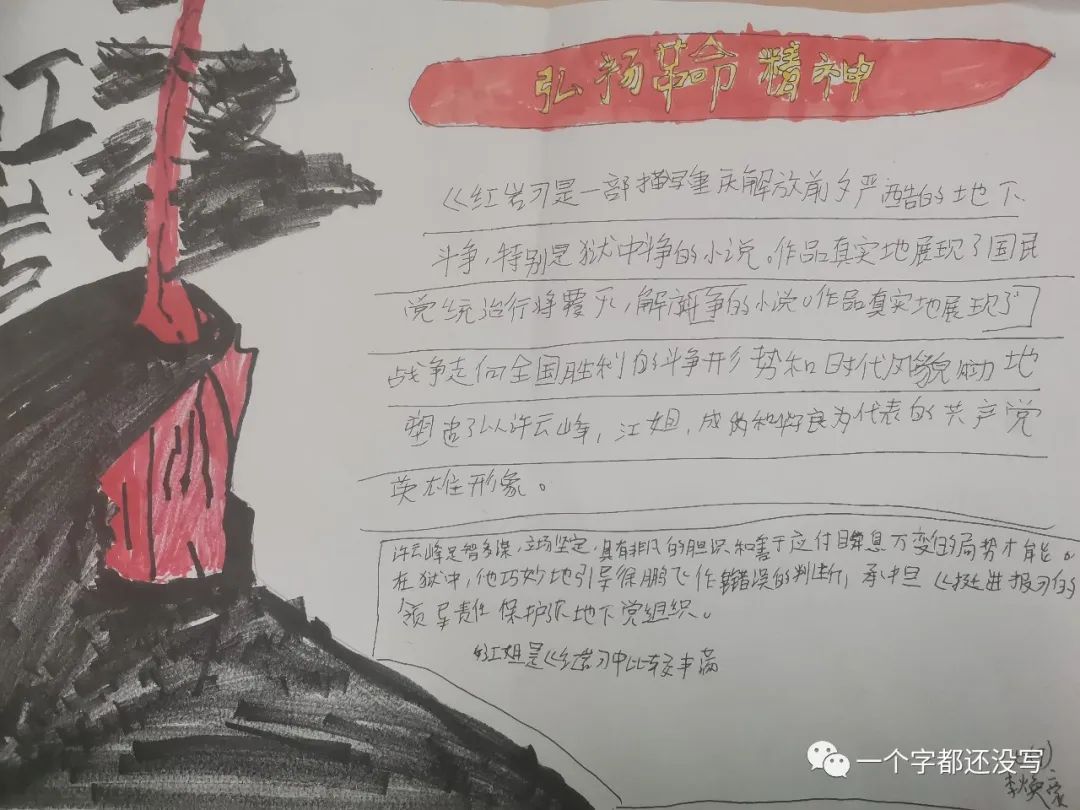 红岩
弘扬革命精神
《红岩》是一部描写重庆解放前夕严酷的地下
斗争,特别是狱中争的小说。作品真实地展现了国民
党统治行将覆灭,解放争的小说。作品真实地展现了
战争走向全国胜利的斗争形势和时代风貌,动地
塑造了以许云峰,江姐,成为代表的共产党
英雄形象。
许云峰足智多谋,立场坚定,具有非凡的胆识和善于应付瞬息万变的局势才能。
在狱中,他巧妙地引导徐鹏飞作错误的判断,承担《挺进报》的
领导责任保护了地下党组织。
江姐是《红岩》中比较丰满
一个字都还没写